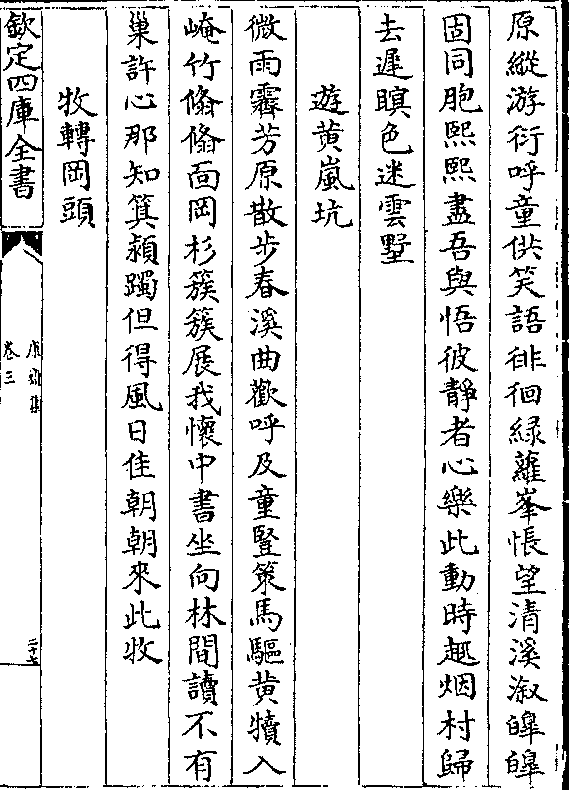 原縱游衍呼童供笑語徘徊緑蘿峯悵望清溪溆皥皥
固同胞熙熙盡吾與悟彼靜者心樂此動時趣烟村歸
去遲暝色迷雲墅
遊黄嵐坑
微雨霽芳原散步春溪曲歡呼及童豎策馬驅黄犢入
崦竹翛翛面岡杉簇簇展我懷中書坐向林間讀不有
巢許心那知箕潁躅但得風日佳朝朝來此牧
牧轉岡頭
欽定四庫全書
卷三
二十七